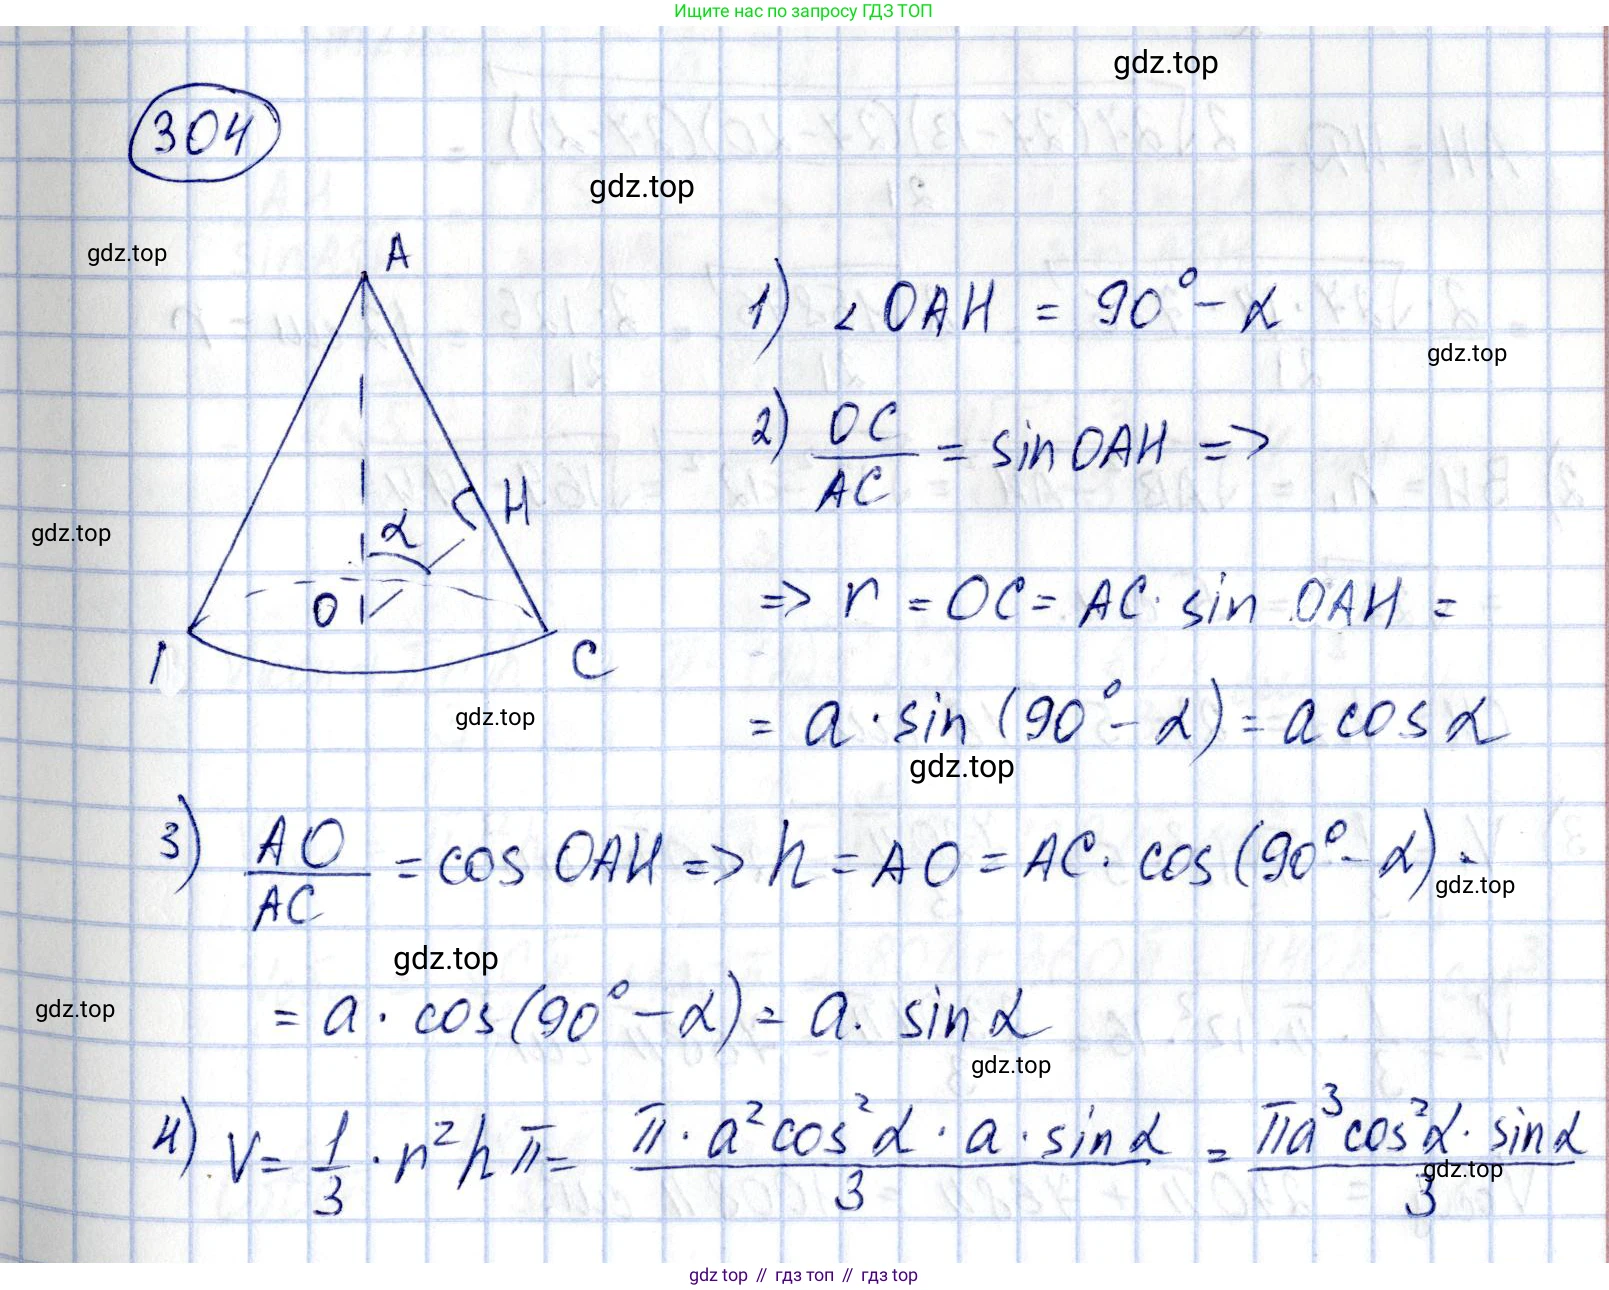 Ищите нас по запросу ГДЗ ТОП
gdz.top
304
gdz.top
gdz.top
A
1) ∠OAH = 90° - α
gdz.top
2) OC/AC = sin OAH =>
H
α
gdz.top
O
=> r = OC = AC · sin OAH =
C
gdz.top
= a · sin (90° - α) = a cos α
gdz.top
3) AO/AC = cos OAH => h = AO = AC · cos (90° - α) =
gdz.top
gdz.top
= a · cos (90° - α) = a · sin α
gdz.top
gdz.top
4) V = 1/3 · r² h π = π · a² cos² α · a · sin α / 3 = πa³ cos² α · sin α / 3
gdz.top
gdz top // гдз топ // gdz top